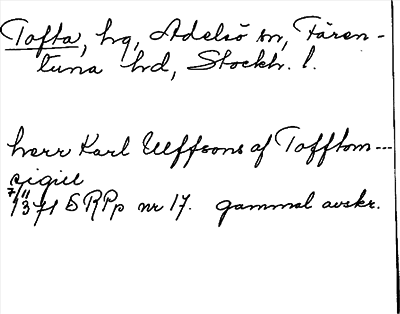 Tofta, hg, Adelsö sn, Fären-
tuna hd, Stockh. l.
herr Karl Ulffsons af Tofftom ---
sigill
7/11 1371 SRPp nr 17. gammal avskr.